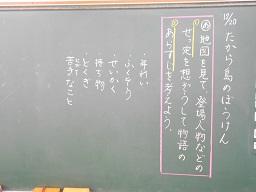 10/20
たから島のぼうけん
め 地図を見て、登場人物などの
せっ定を想ぞうして物語の
あらすじを考えよう。
・年れい
・ふくそう
・せいかく
・持ち物
・とくぎ
・苦手なこと